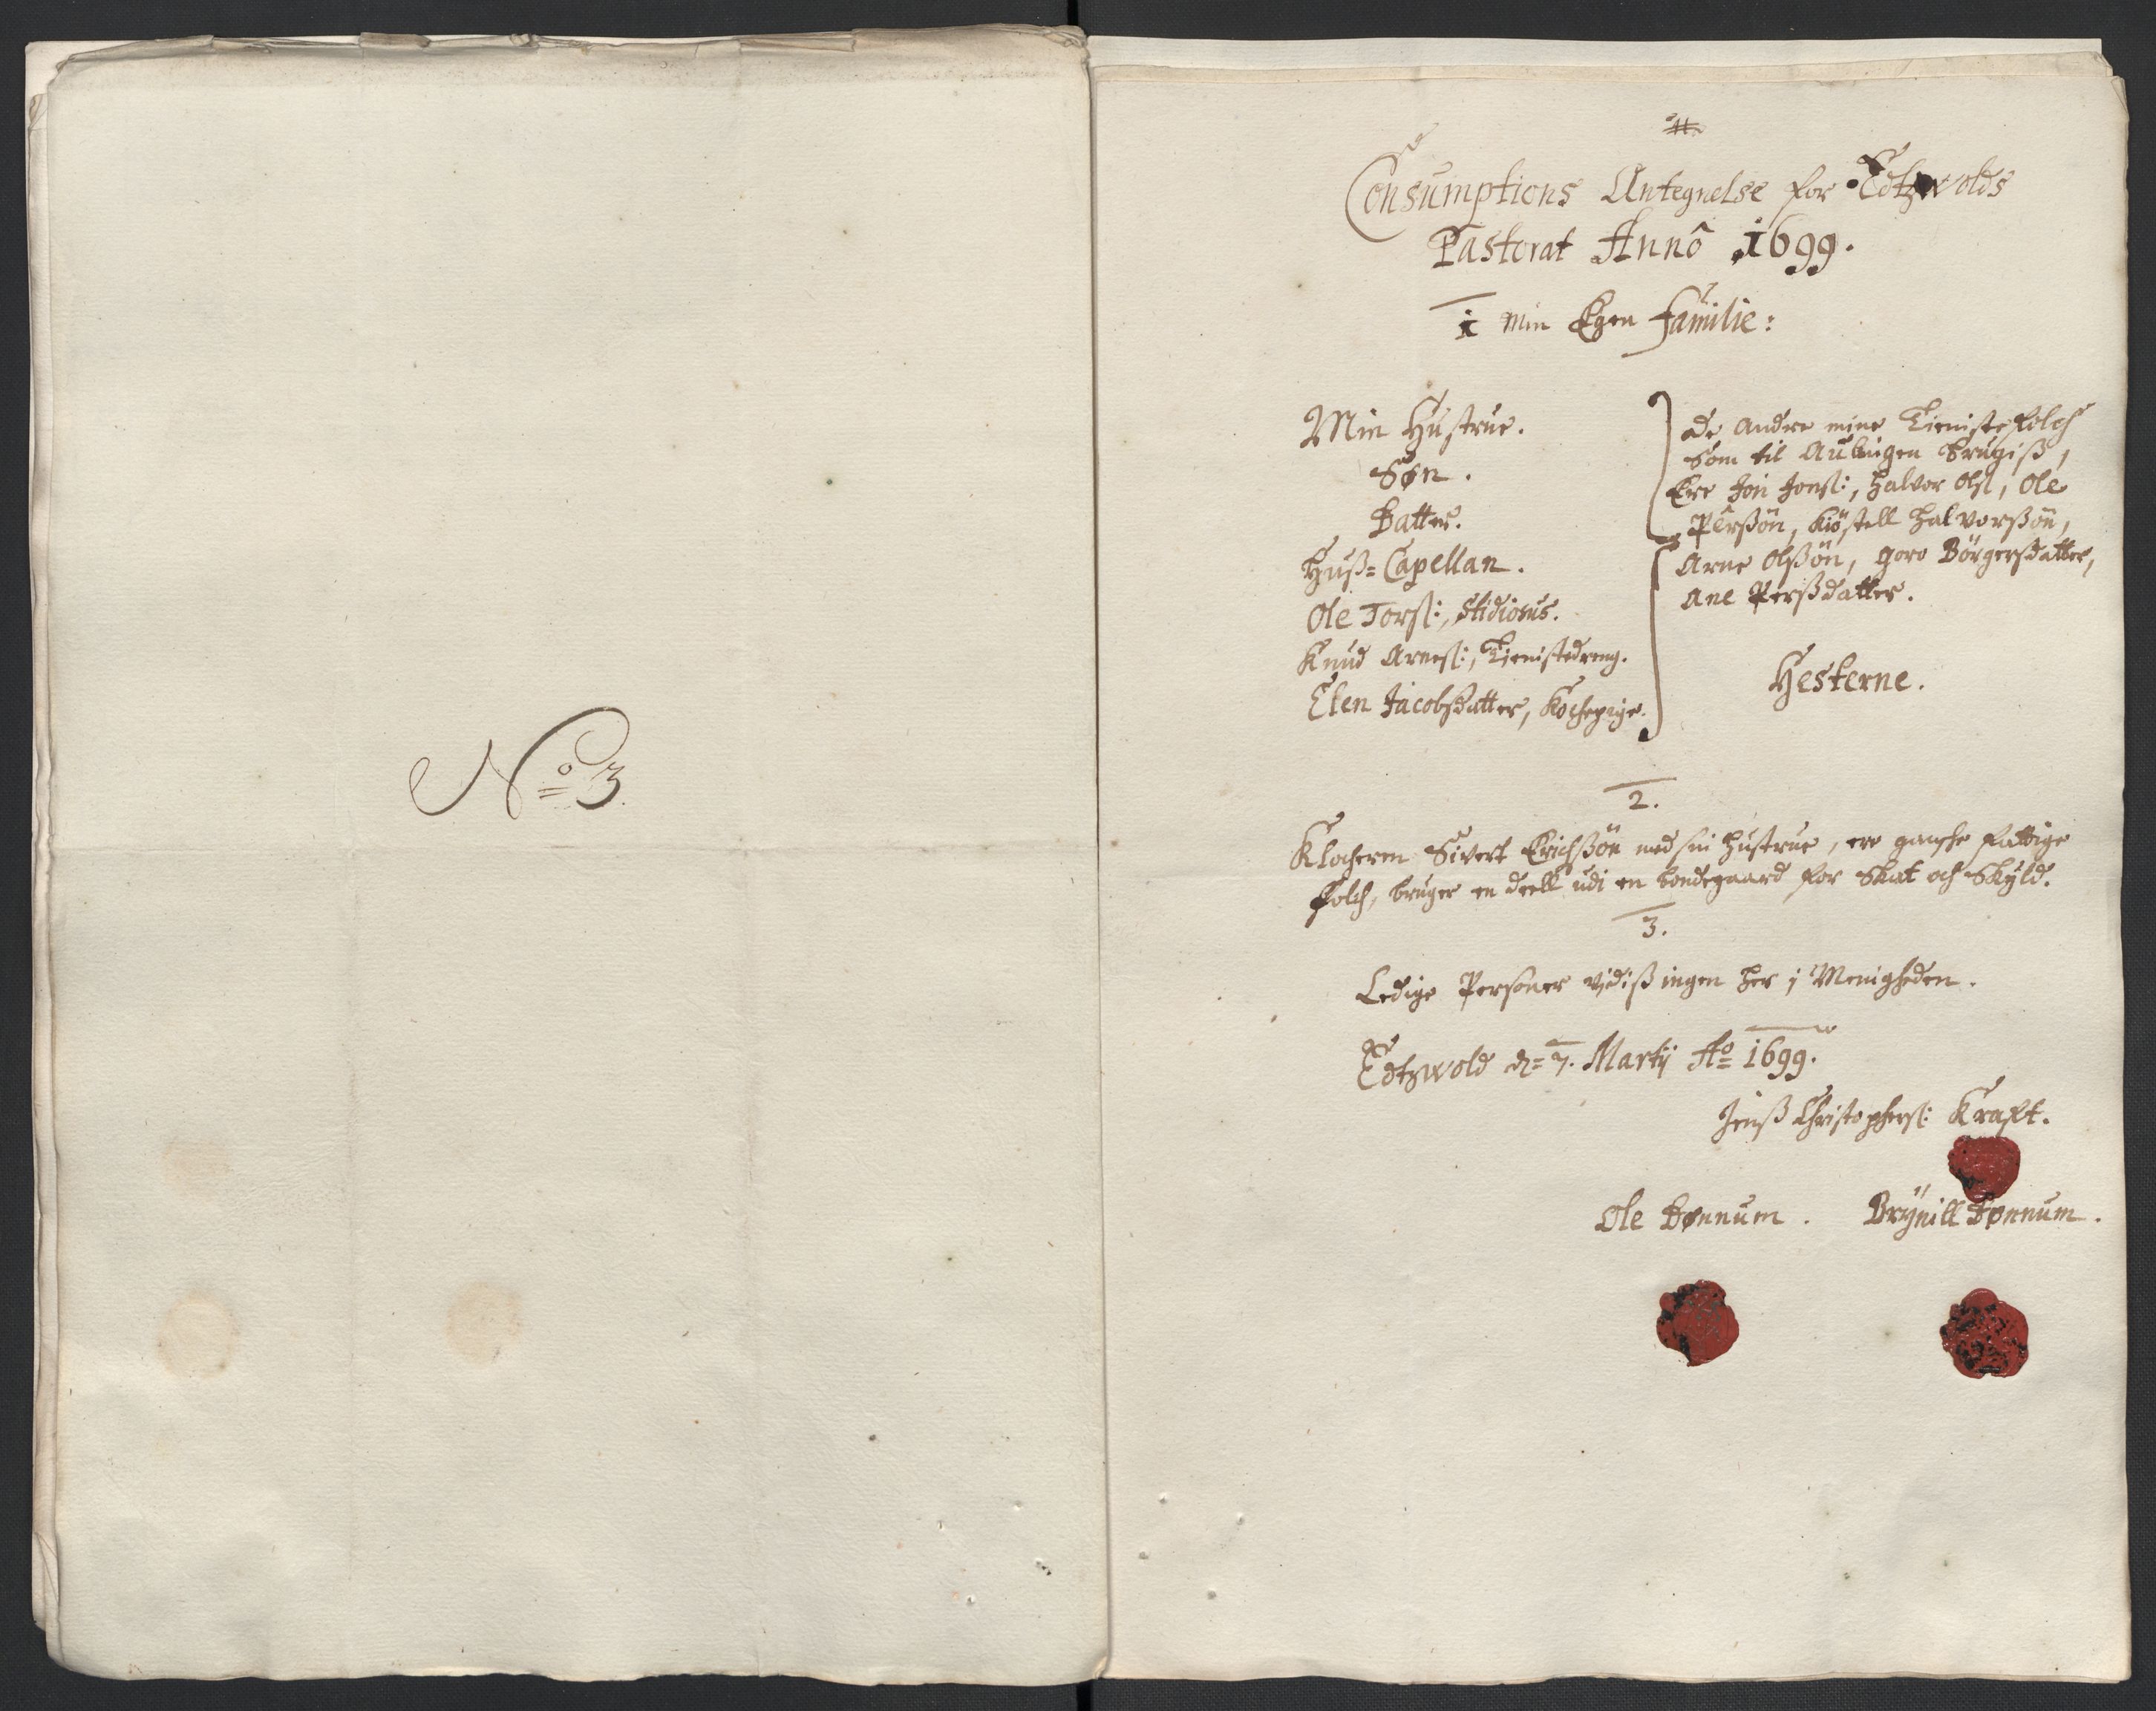 No 3.
Consumptions Antegnelse for Edtzwolds
Pastorat Annô 1699.
1 Min Egen Familie:
Min Hustrue.
Søn.
Datter.
Huß=Capellan.
Ole Torsl:, Studiosus.
Knud Arnesl:, Tienistedreng.
Elen Jacobsdatter, Kochepige.
De andre mine Tienistefolch
som til Aulingen brugiß,
Ere Jon Jonsl:, Halvor Olsl, Ole
Pêrßøn, Kiöstell Halvorßøn,
Arne Olßøn, Goro Börgersdatter,
Ane Perßdatter.
Hesterne.
2.
Klocheren Sivert Erichßøn med sin Hustrue, ere ganske fattige
folch, bruger en deell udi en bondegaard for Skat och Skyld.
3.
Ledige Personer vidiß ingen her j Menigheden.
Edtzwold d= 7. Martij Ao 1699.
Jenß Christophersl: Kraft.
Ole Dønnum. Brynill Dønnum.